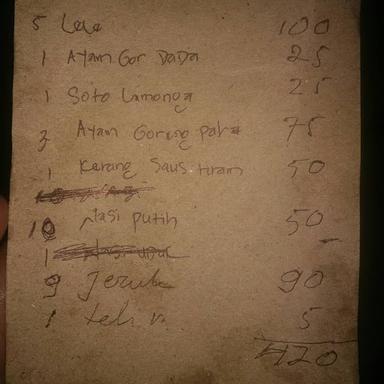 5 Lele 100
1 Ayam Gor Dada 25
1 Soto Lamonga 25
3 Ayam Goreng paha 75
1 Kerang Saus tiram 50
10 Nasi putih 50
1
9 Jeruk 90
1 teh 5
420